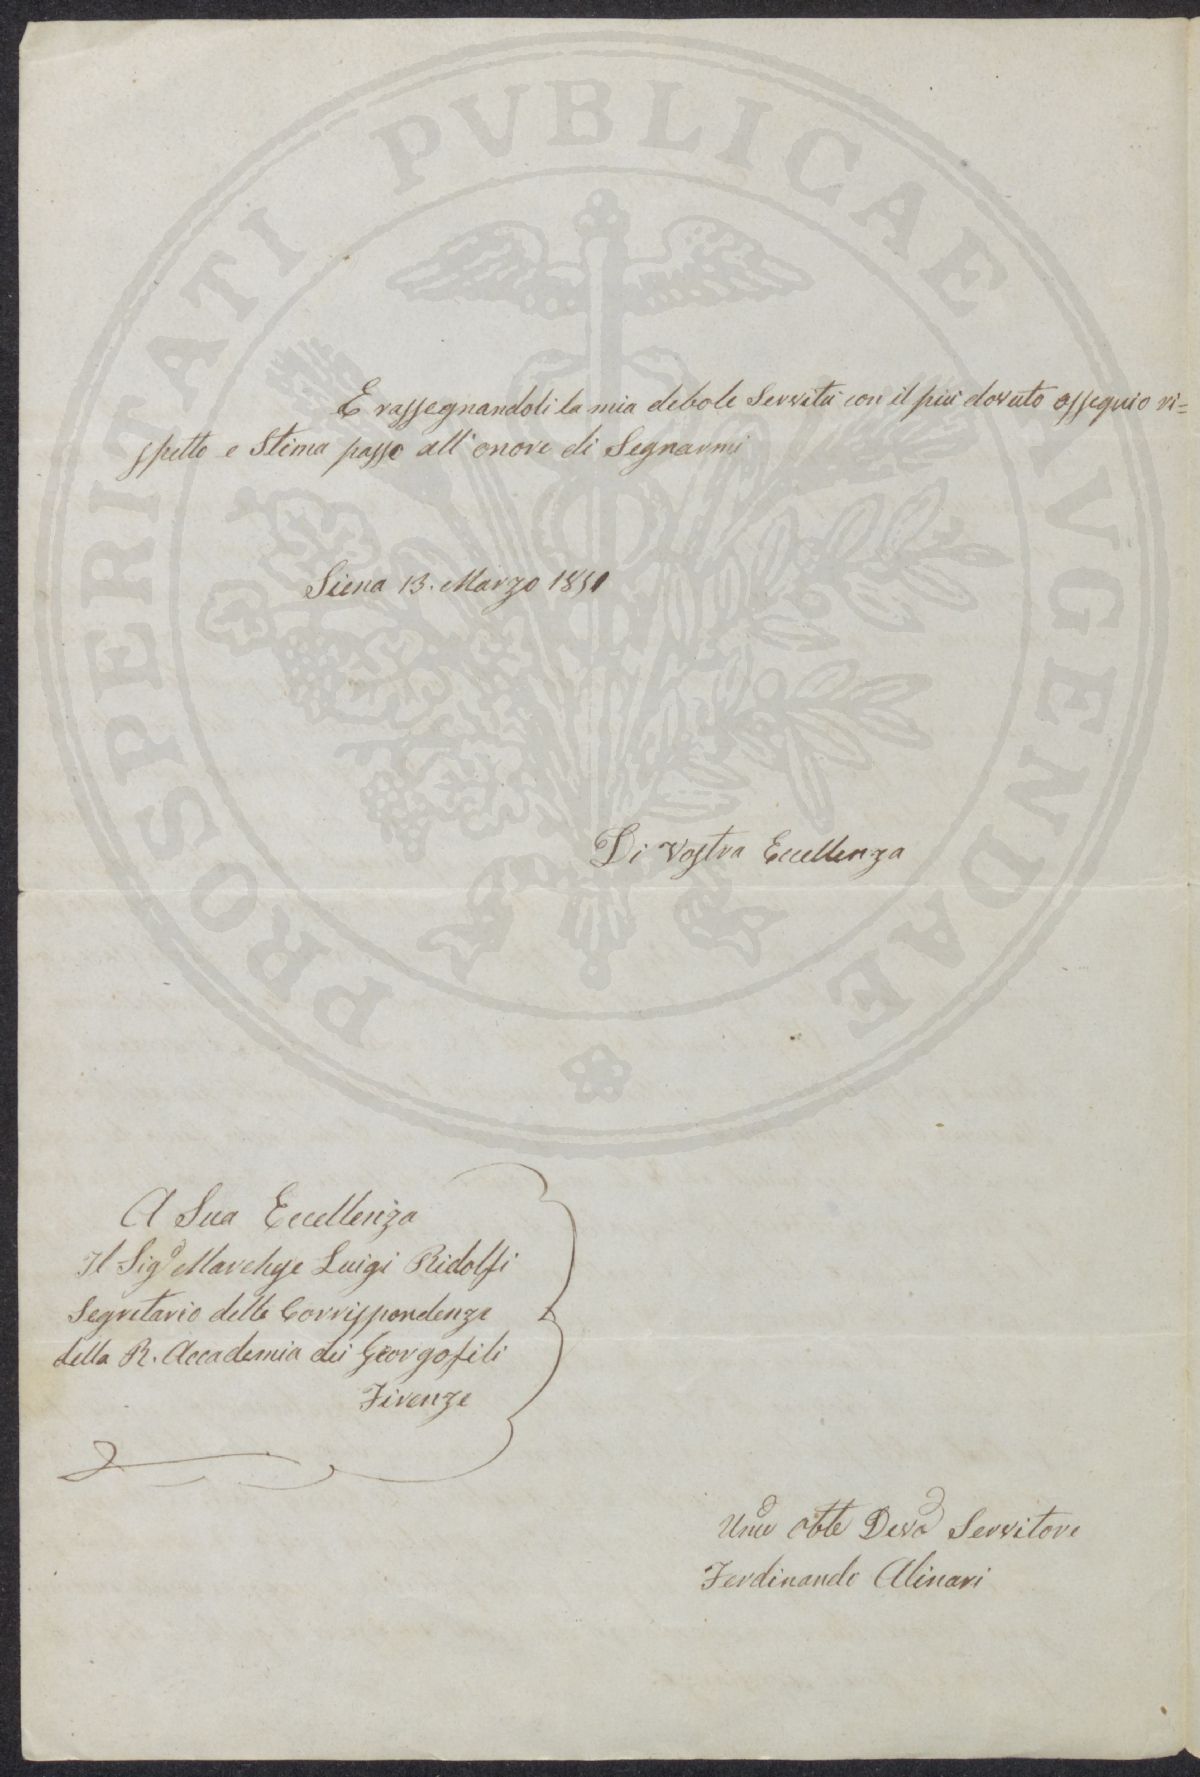 PROSPERITATI PUBLICAE AUGENDAE
E rassegnandoli la mia debole Servitù con il più dovuto ossequio ri=
spetto e Stima passo all'onore di Segnarmi
Siena 13. Marzo 1851
Di Vostra Eccellenza
A Sua Eccellenza
Il Sigᵉ Marchese Luigi Ridolfi
Segretario delle Corrispondenze
della R. Accademia dei Georgofili
Firenze
Umo Obbe Devo Servitore
Ferdinando Alinari